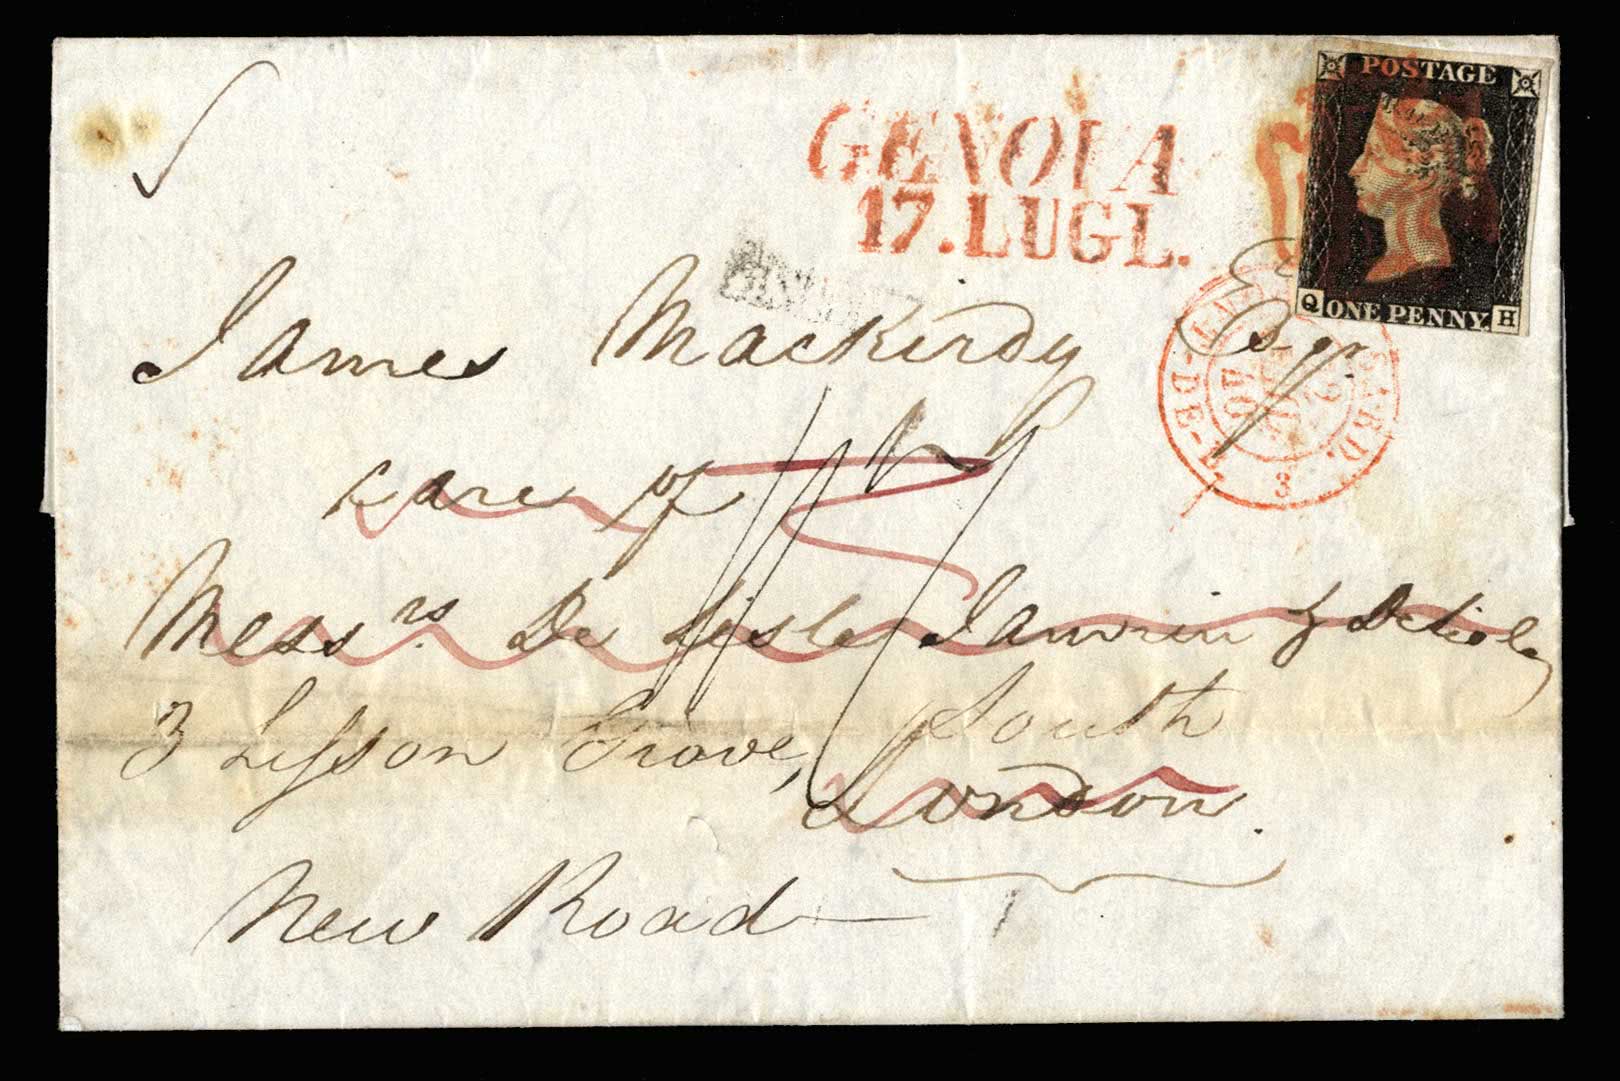 POSTAGE
GENOVA
17. LUGL.
Q ONE PENNY. H
James Mackirdy Esqr
care of
Messrs. De Lisle Janvrin & De Lisle
3 Lisson Grove, South
London.
New Road